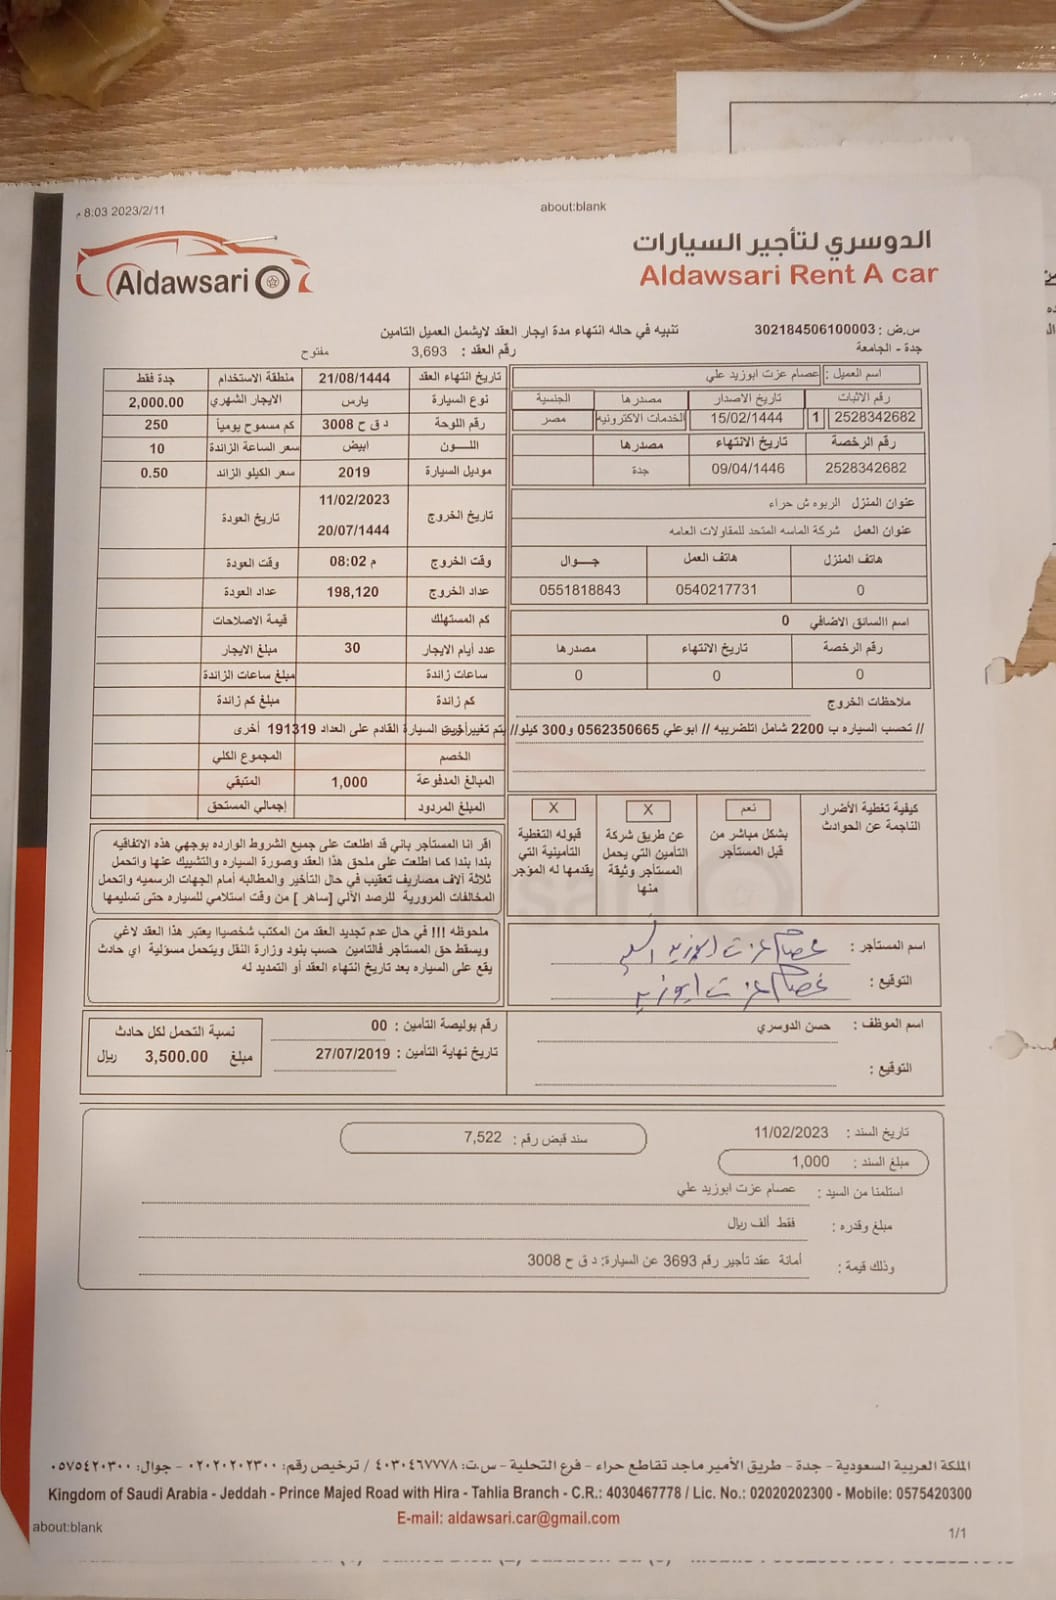 8:03 2023/2/11 م
about:blank
Aldawsari
الدوسري لتأجير السيارات
Aldawsari Rent A car
س.ض : 302184506100003
تنبيه في حاله انتهاء مدة ايجار العقد لايشمل العميل التامين
جدة - الجامعة
رقم العقد : 3,693
مفتوح
اسم العميل : عصام عزت ابوزيد علي
رقم الاثبات تاريخ الاصدار مصدرها الجنسية
2528342682 1 15/02/1444 الخدمات الاكترونية مصر
رقم الرخصة تاريخ الانتهاء مصدرها
2528342682 09/04/1446 جدة
عنوان المنزل الربوه ش حراء
عنوان العمل شركة الماسه المتحد للمقاولات العامه
هاتف المنزل هاتف العمل جـــوال
0 0540217731 0551818843
اسم السائق الاضافي 0
رقم الرخصة تاريخ الانتهاء مصدرها
0 0 0
ملاحظات الخروج
// تحسب السياره ب 2200 شامل اتلضريبه // ابوعلي 0562350665 و300 كيلو// يتم تغيير زيت السيارة القادم على العداد 191319
تاريخ انتهاء العقد 21/08/1444 منطقة الاستخدام جدة فقط
نوع السيارة يارس الايجار الشهري 2,000.00
رقم اللوحة د ق ح 3008 كم مسموح يومياً 250
اللــــون ابيض سعر الساعة الزائدة 10
موديل السيارة 2019 سعر الكيلو الزائد 0.50
تاريخ الخروج 11/02/2023 تاريخ العودة
20/07/1444
وقت الخروج 08:02 م وقت العودة
عداد الخروج 198,120 عداد العودة
كم المستهلك قيمة الاصلاحات
عدد أيام الايجار 30 مبلغ الايجار
ساعات زائدة مبلغ ساعات الزائدة
كم زائدة مبلغ كم زائدة
أخرى
الخصم المجموع الكلي
المبالغ المدفوعة 1,000 المتبقي
المبلغ المردود إجمالي المستحق
كيفية تغطية الأضرار الناجمة عن الحوادث
نعم
بشكل مباشر من قبل المستأجر
X
عن طريق شركة التأمين التي يحمل المستأجر وثيقة منها
X
قبوله التغطية التأمينية التي يقدمها له المؤجر
اقر انا المستأجر باني قد اطلعت على جميع الشروط الوارده بوجهي هذه الاتفاقيه
بندا بندا كما اطلعت على ملحق هذا العقد وصورة السياره والتشييك عنها واتحمل
ثلاثة آلاف مصاريف تعقيب في حال التأخير والمطالبه أمام الجهات الرسميه واتحمل
المخالفات المرورية للرصد الألي [ساهر ] من وقت استلامي للسياره حتى تسليمها
ملحوظه !!! في حال عدم تجديد العقد من المكتب شخصياا يعتبر هذا العقد لاغي
ويسقط حق المستأجر فالتامين حسب بنود وزارة النقل ويتحمل مسؤلية اي حادث
يقع على السياره بعد تاريخ انتهاء العقد أو التمديد له
اسم المستأجر : عصام عزت ابوزيد
التوقيع : عصام عزت ابوزيد
اسم الموظف : حسن الدوسري
التوقيع :
رقم بوليصة التأمين : 00
تاريخ نهاية التأمين : 27/07/2019
نسبة التحمل لكل حادث
مبلغ 3,500.00 ريال
تاريخ السند : 11/02/2023
سند قبض رقم : 7,522
مبلغ السند : 1,000
استلمنا من السيد : عصام عزت ابوزيد علي
مبلغ وقدره : فقط ألف ريال
وذلك قيمة : أمانة عقد تأجير رقم 3693 عن السيارة: د ق ح 3008
المملكة العربية السعودية - جدة - طريق الأمير ماجد تقاطع حراء - فرع التحلية - س.ت: ٤٠٣٠٤٦٧٧٧٨ / ترخيص رقم: ٠٢٠٢٠٢٠٢٣٠٠ - جوال: ٠٥٧٥٤٢٠٣٠٠
Kingdom of Saudi Arabia - Jeddah - Prince Majed Road with Hira - Tahlia Branch - C.R.: 4030467778 / Lic. No.: 02020202300 - Mobile: 0575420300
E-mail: aldawsari.car@gmail.com
about:blank
1/1